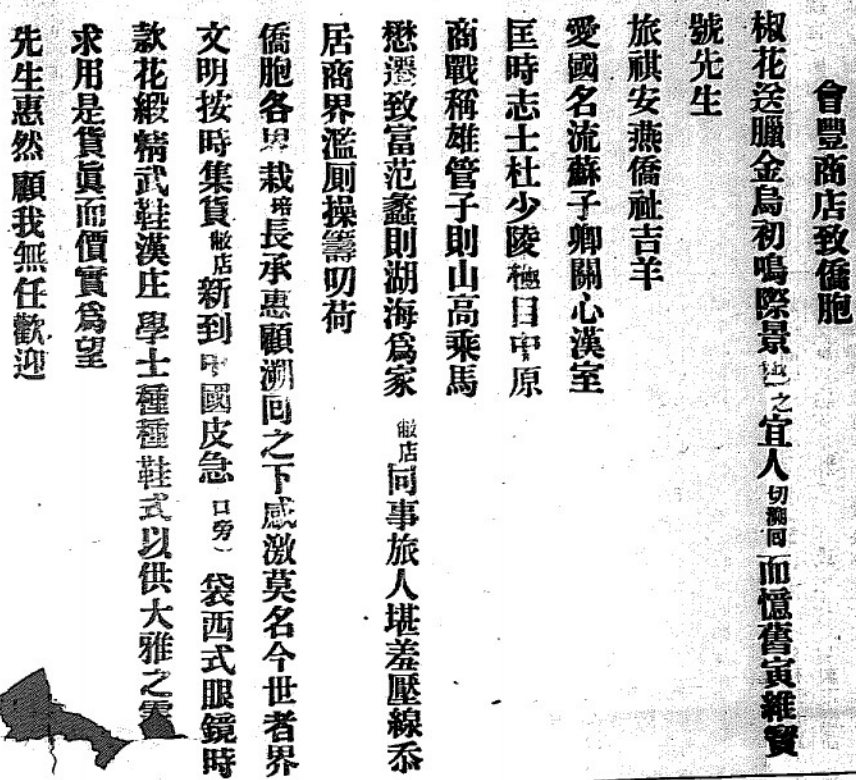 會豐商店致僑胞
椒花送臘金鳥初鳴際景之宜人切溯回而憶舊寅維賢
號先生
旅祺安燕僑祉吉羊
愛國名流蘇子卿關心漢室
匡時志士杜少陵極目中原
商戰稱雄管子則山高乘馬
懋遷致富范蠡則湖海爲家 敝店同事旅人堪羞壓線忝
居商界濫厠操籌叨荷
僑胞各界栽培長承惠顧溯回之下感激莫名今世者界
文明按時集貨敝店新到中國皮急 口旁）袋西式眼鏡時
款花緞精武鞋漢庄學士種種鞋式以供大雅之
求用是貨眞而價實爲望
先生惠然顧我無任歡迎